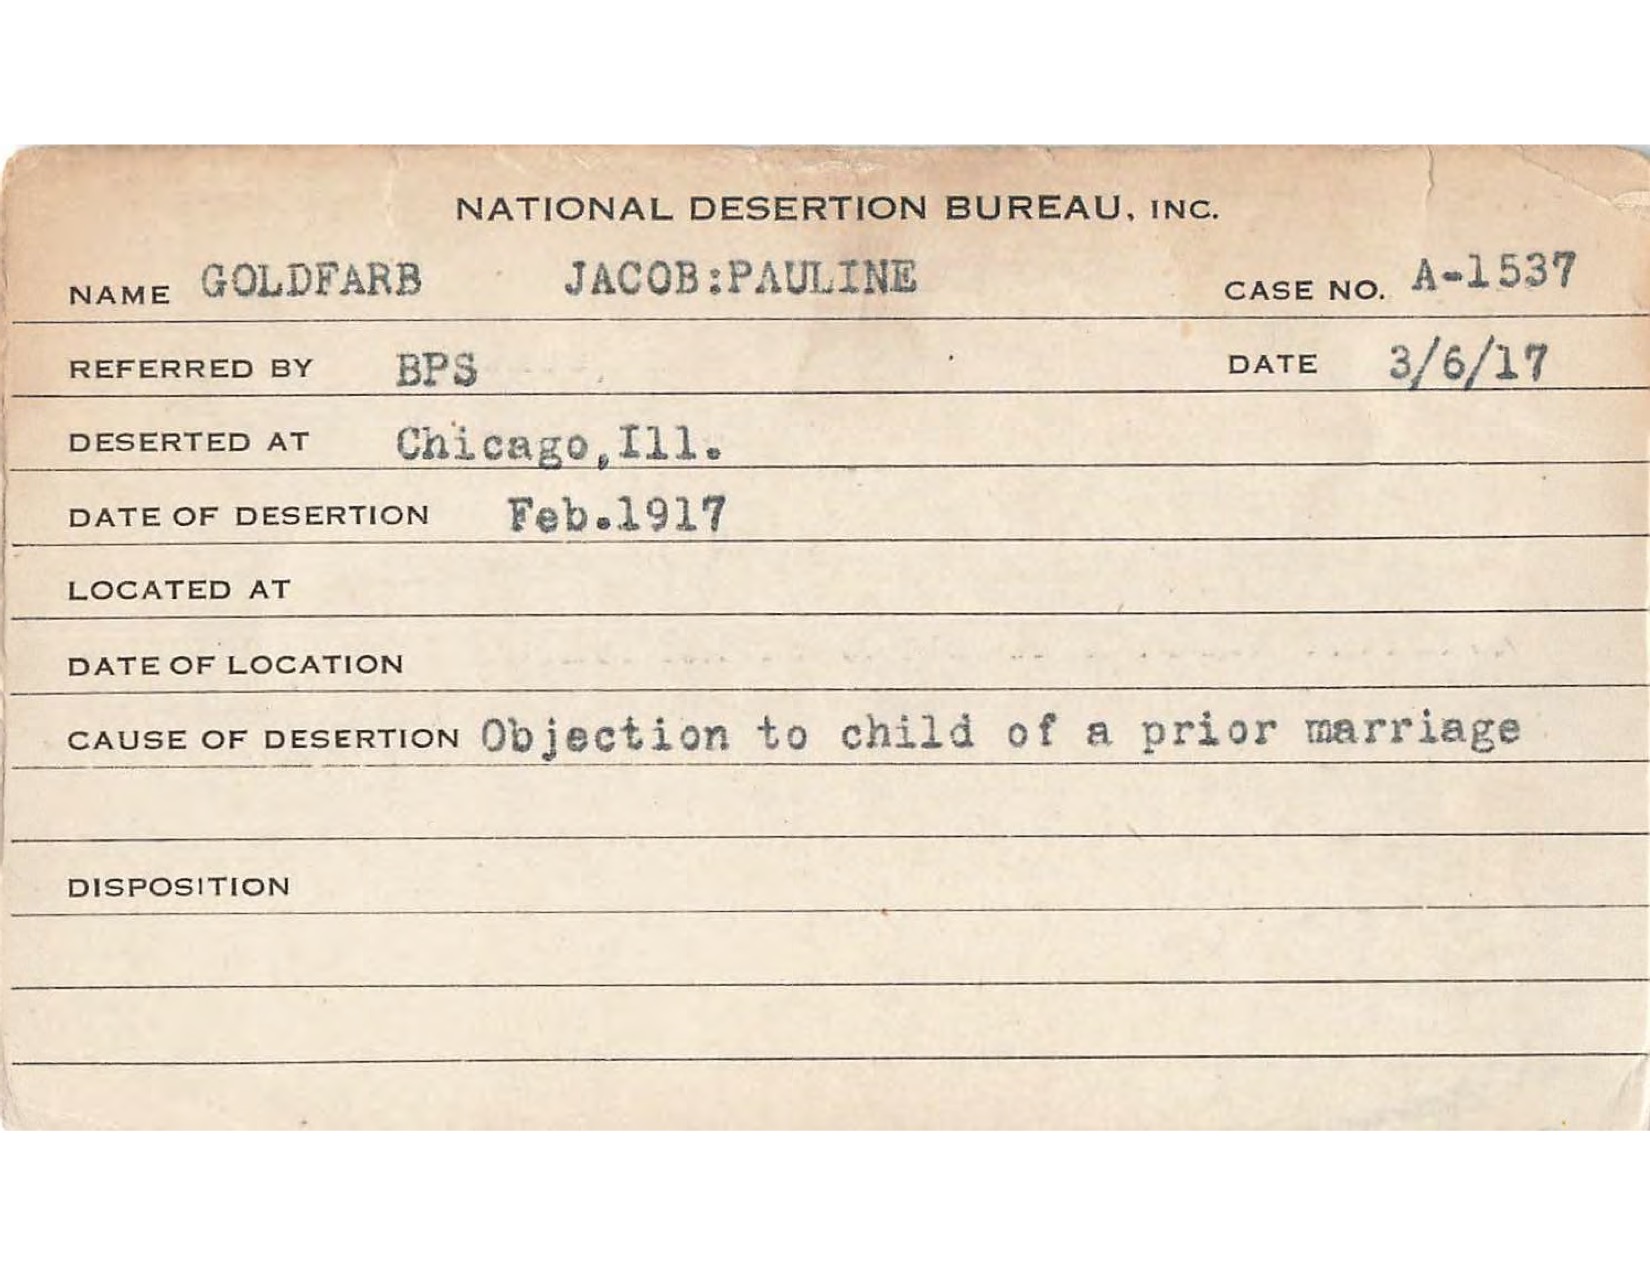 NATIONAL DESERTION BUREAU, INC.
NAME GOLDFARB JACOB:PAULINE CASE NO. A-1537
REFERRED BY BPS DATE 3/6/17
DESERTED AT Chicago,Ill.
DATE OF DESERTION Feb.1917
LOCATED AT
DATE OF LOCATION
CAUSE OF DESERTION Objection to child of a prior marriage
DISPOSITION